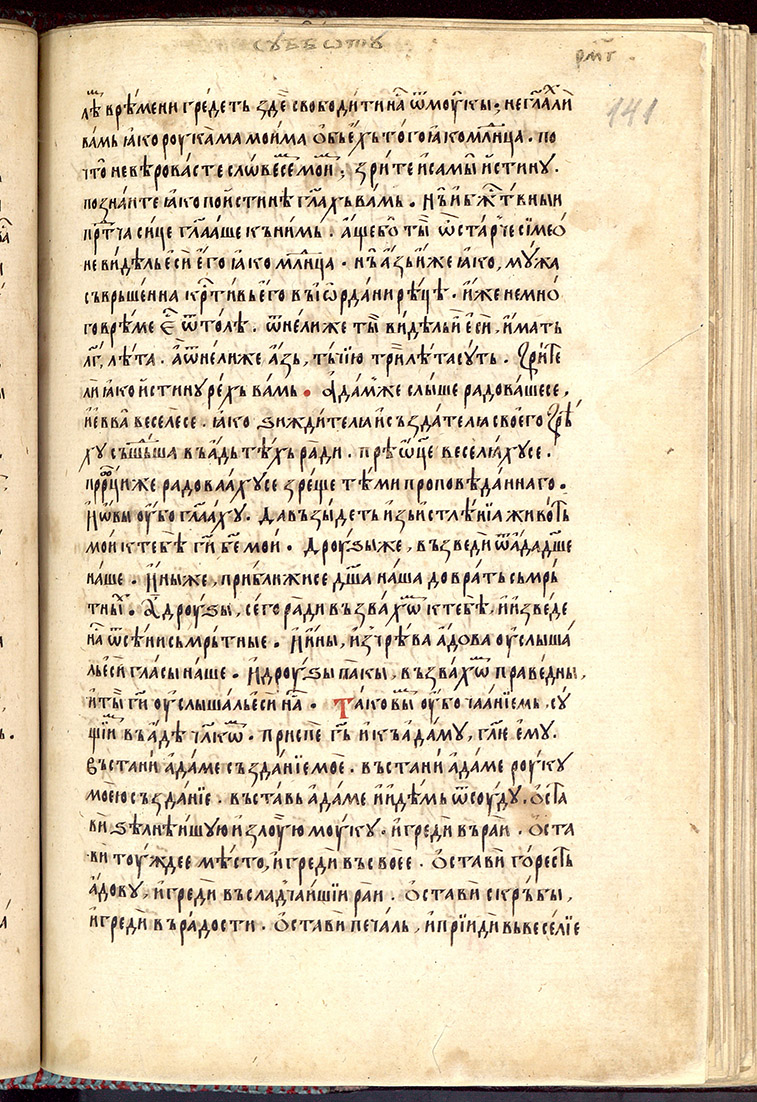 сꙋбботꙋ
рм҃г
141
лѣ врѣмени грѣдеть зде свободити на҆ ѿ моукы; не гл҃ахли
вамь ꙗко роукама моима ѻбьехь того ꙗко мл҃нца . по
что не вѣровасте словесем мои; зрите и самы истинꙋ .
познаите ꙗко поистинѣ гл҃ахь вамь . нь и бж҃твныи
прⷣтча сице гл҃ааше кь нимь . аще бо ты ѡ старче сїмеѻ
не видѣль еси его ꙗко мл҃нца . нь азь иже ꙗко, мꙋжа
сьврьшенна крⷭ҇тивь его вь іѡрдани рѣцѣ . иже не мно
го врѣме еⷭ҇ ѿтолѣ . ѿнелиже ты видѣль еси, имать
лг҃, лѣта . а ѿнелиже азь, тьчїю три лѣта сꙋть . зрите
ли ꙗко истинꙋ рѣхь вамь . Адам же слыше радовашесе,
и евва веселесе . ꙗко зиждителꙗ и сьздателꙗ своего зрѣ
хꙋ сьшьⷣша вь адь тѣхь ради . прѣѡⷮце веселꙗхꙋсе .
прⷪ҇рци же радоваахꙋсе зреще тѣми проповѣданнаго .
И ѡвы оубо гл҃аахꙋ . да вьзыдеть изь истлѣнїа животь
мои кь тебѣ гⷭ҇и бж҃е мои . Дроузы же, вьзведи ѿ ада дш҃е
наше . И ины же, приближисе дш҃а наша до врать сьмрь
тных . А дроузы, сего ради вьзвахѡм к тебѣ, и изведе
на ѿ сѣни сьмрьтные . И ины, из чрѣва адова оуслыша
ль еси гласы наше . И дроузы пакы, вьзвахѡм праведны,
и ты гⷭ҇и оуслышаль еси на . Таковым оубо чаанїемь, сꙋ
щїим вь адѣ чл҃кѡм . приспе гⷭ҇ь и кь адамꙋ, гл҃ѥ емꙋ .
Вьстани адаме сьзданїе мое . вьстани адаме роукꙋ
моею сьзданїе . вьставь адаме и идѣмь ѿсоудꙋ . ѻста
ви зѣлнѣишꙋю и злоую моукꙋ . и греди вь раи . ѻста
ви тоуждее мѣсто, и греди вь своее . ѻстави горесть
адовꙋ, и греди вь сладчаишїи раи . ѻстави скрьбы,
и греди вь радости . ѻстави печаль, и прїиди вь веселїе